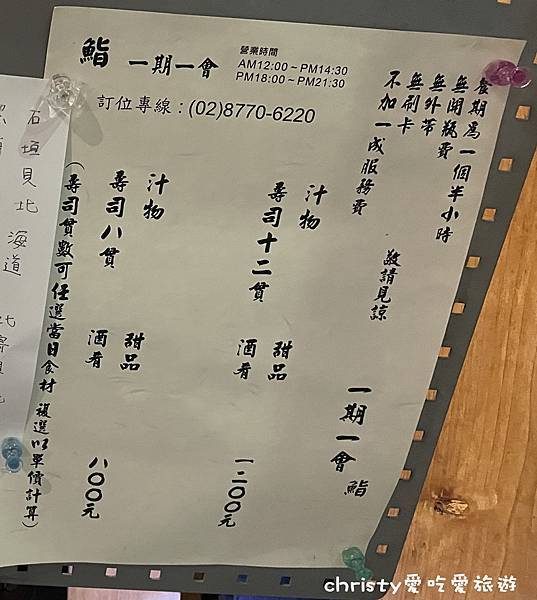 鮨 一期一會
營業時間
AM12:00~PM14:30
PM18:00~PM21:30
訂位專線:(02)8770-6220
餐期為一個半小時
無開瓶費
無外帶
無刷卡
不加一成服務費
敬請見諒
一期一會 鮨
汁物 甜品
壽司十二貫 酒肴 一二〇〇元
汁物 甜品
壽司八貫 酒肴 八〇〇元
(壽司貫數可任選當日食材 複選以單價計算)
石垣貝 北海道
christy愛吃愛旅遊